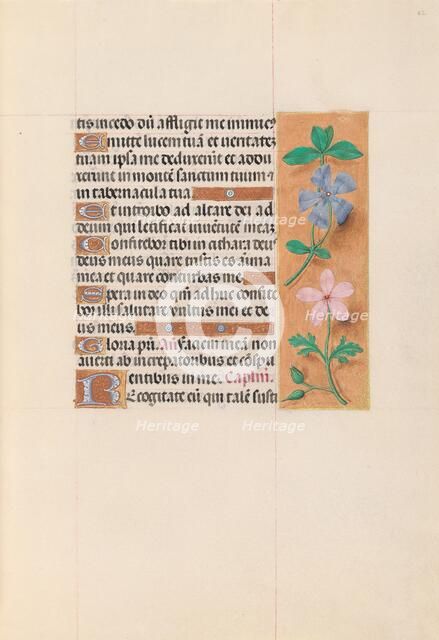 tis incedo dū affligit me inimic⁹
Emitte lucem tuā et veritatē
tuam ipsa me deduxerūt et addu
xerunt in montē sanctum tuum ⁊
in tabernacula tua
Et introibo ad altare dei ad
deum qui letificat iuventutē meā.
Confitebor tibi in cithara deus
deus meus quare tristis es aīma
mea et quare conturbas me
Spera in deo qm̄ adhuc confite
bor illi salutare vultus mei et de
us meus.
Gloria pri̅. An̄ Faciem meā non
averti ab increpatoribus et cōspu
entibus in me. Caplm̄.
Recogitate eū qui talē susti
Heritage
Heritage
Heritage
Heritage
Heritage
Heritage